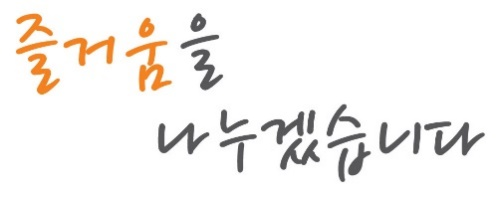 즐거움을
나누겠습니다